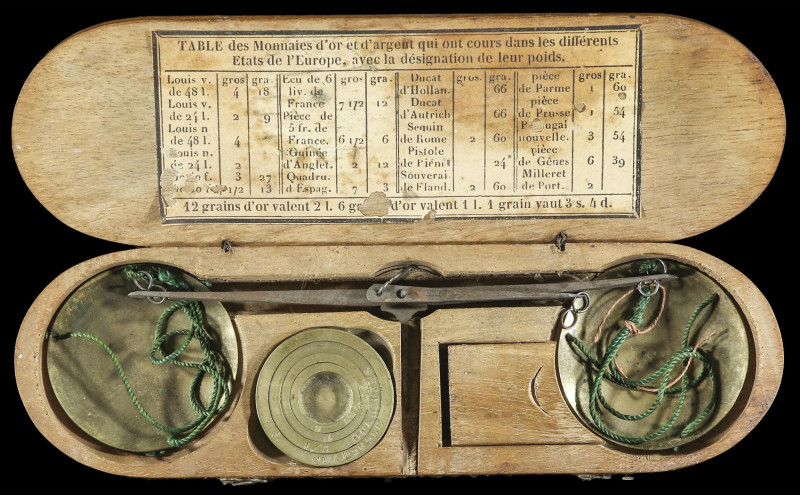 TABLE des Monnaies d'or et d'argent qui ont cours dans les différents
Etats de l'Europe, avec la désignation de leur poids.
Louis v. gros gra.
de 48 l. 4 18
Louis v.
de 24 l. 2 9
Louis n
de 48 l. 4
Louis n.
de 24 l. 2
f. 3 27
1/2 13
Ecu de 6 gros gra.
liv. de
France 7 1/2 12
Pièce de
5 fr. de
France. 6 1/2 6
Guinée
d'Anglet. 2 12
Quadru.
d Espag. 7 3
Ducat gros. gra.
d'Hollan. 66
Ducat
d'Autrich 66
Sequin
de Rome 2 60
Pistole
de Piém 24
Souverai
de Fland. 2 60
pièce gros gra.
de Parme 1 60
pièce
de Prusse 1 54
Portugai
nouvelle. 3 54
pièce
de Gênes 6 39
Milleret
de Port. 2
12 grains d'or valent 2 l. 6 d'or valent 1 l. 1 grain vaut 3 s. 4 d.